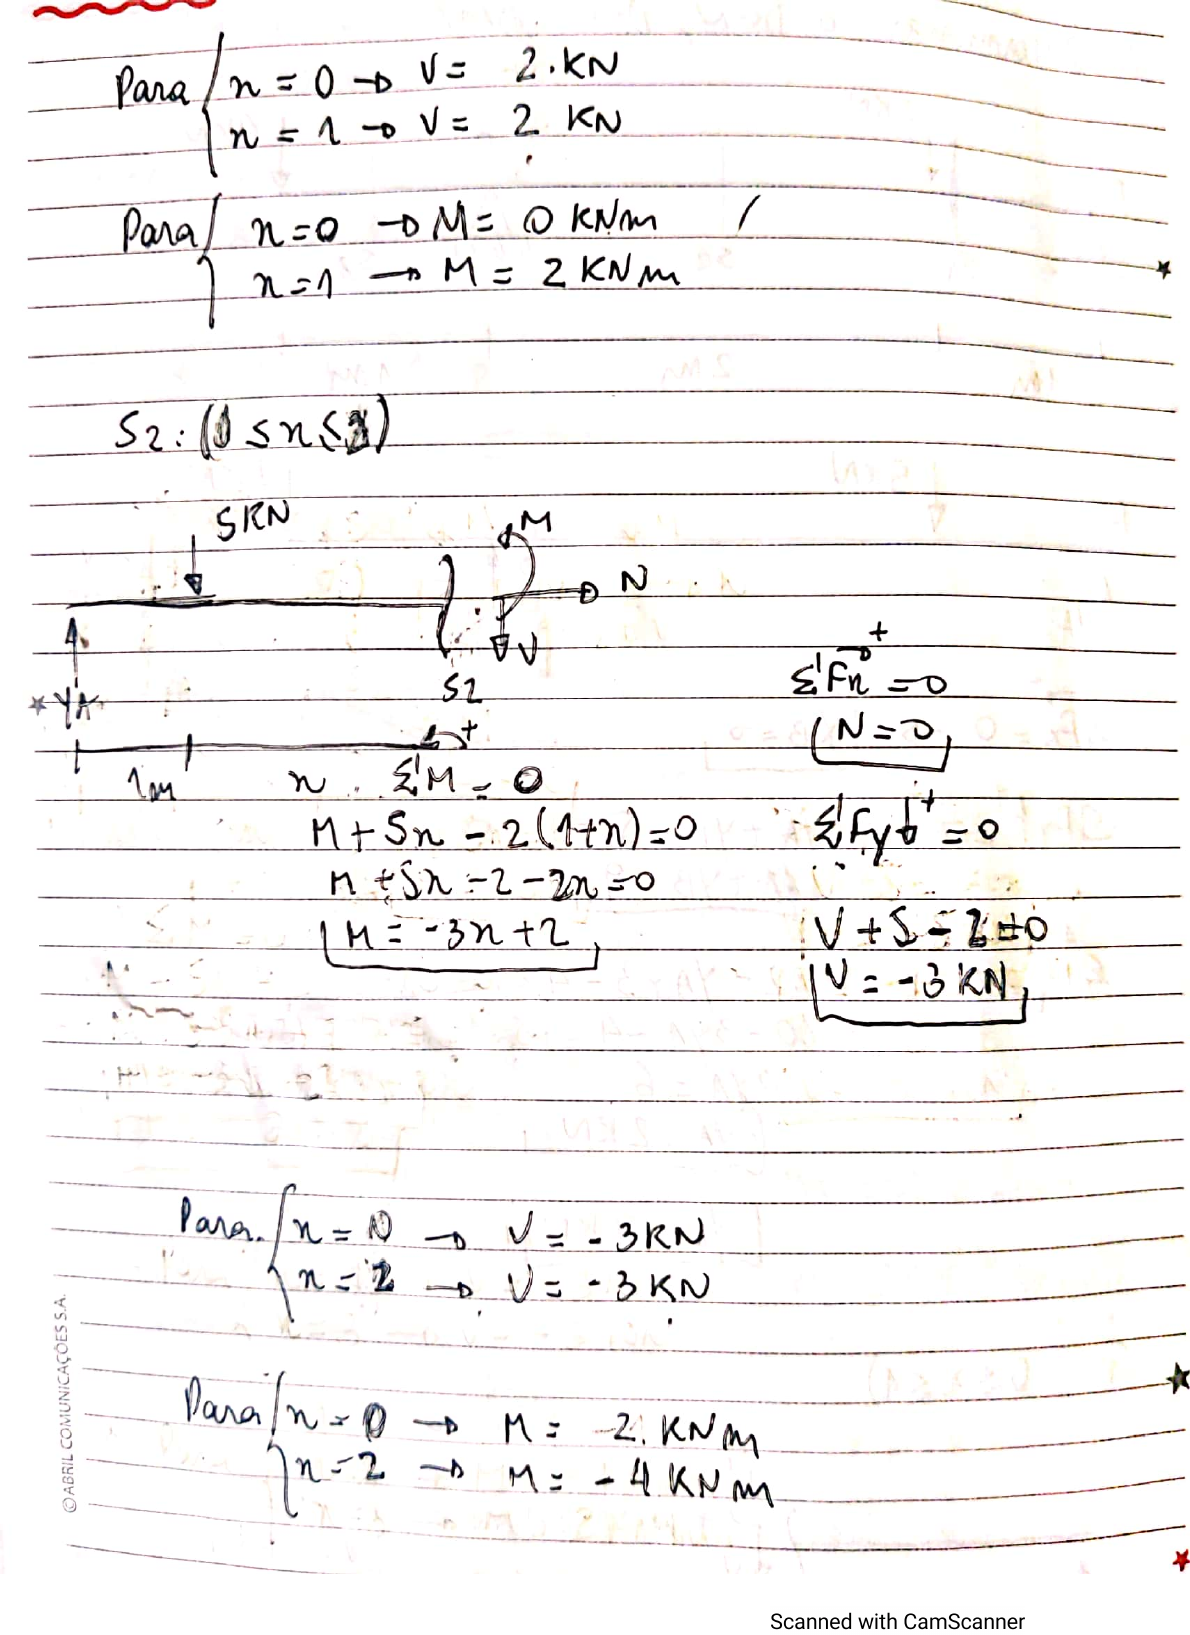 Para { x = 0 → V = 2.KN
x = 1 → V = 2 KN
Para { x=0 → M = 0 KNm /
x=1 → M = 2 KNm
S2: (0 ≤ x ≤ )
5KN
M
N
V
YA
S2
ΣFx → + = 0
N = 0
1m
x
ΣM = 0 +
M + 5x - 2(1+x) = 0
M + 5x - 2 - 2x = 0
M = -3x + 2
ΣFy ↓ + = 0
V + 5 - 2 = 0
V = -3 KN
Para { x = 0 → V = - 3KN
x = 2 → V = - 3 KN
Para { x = 0 → M = 2. KNm
x = 2 → M = - 4 KNm
© ABRIL COMUNICAÇÕES S.A.
Scanned with CamScanner